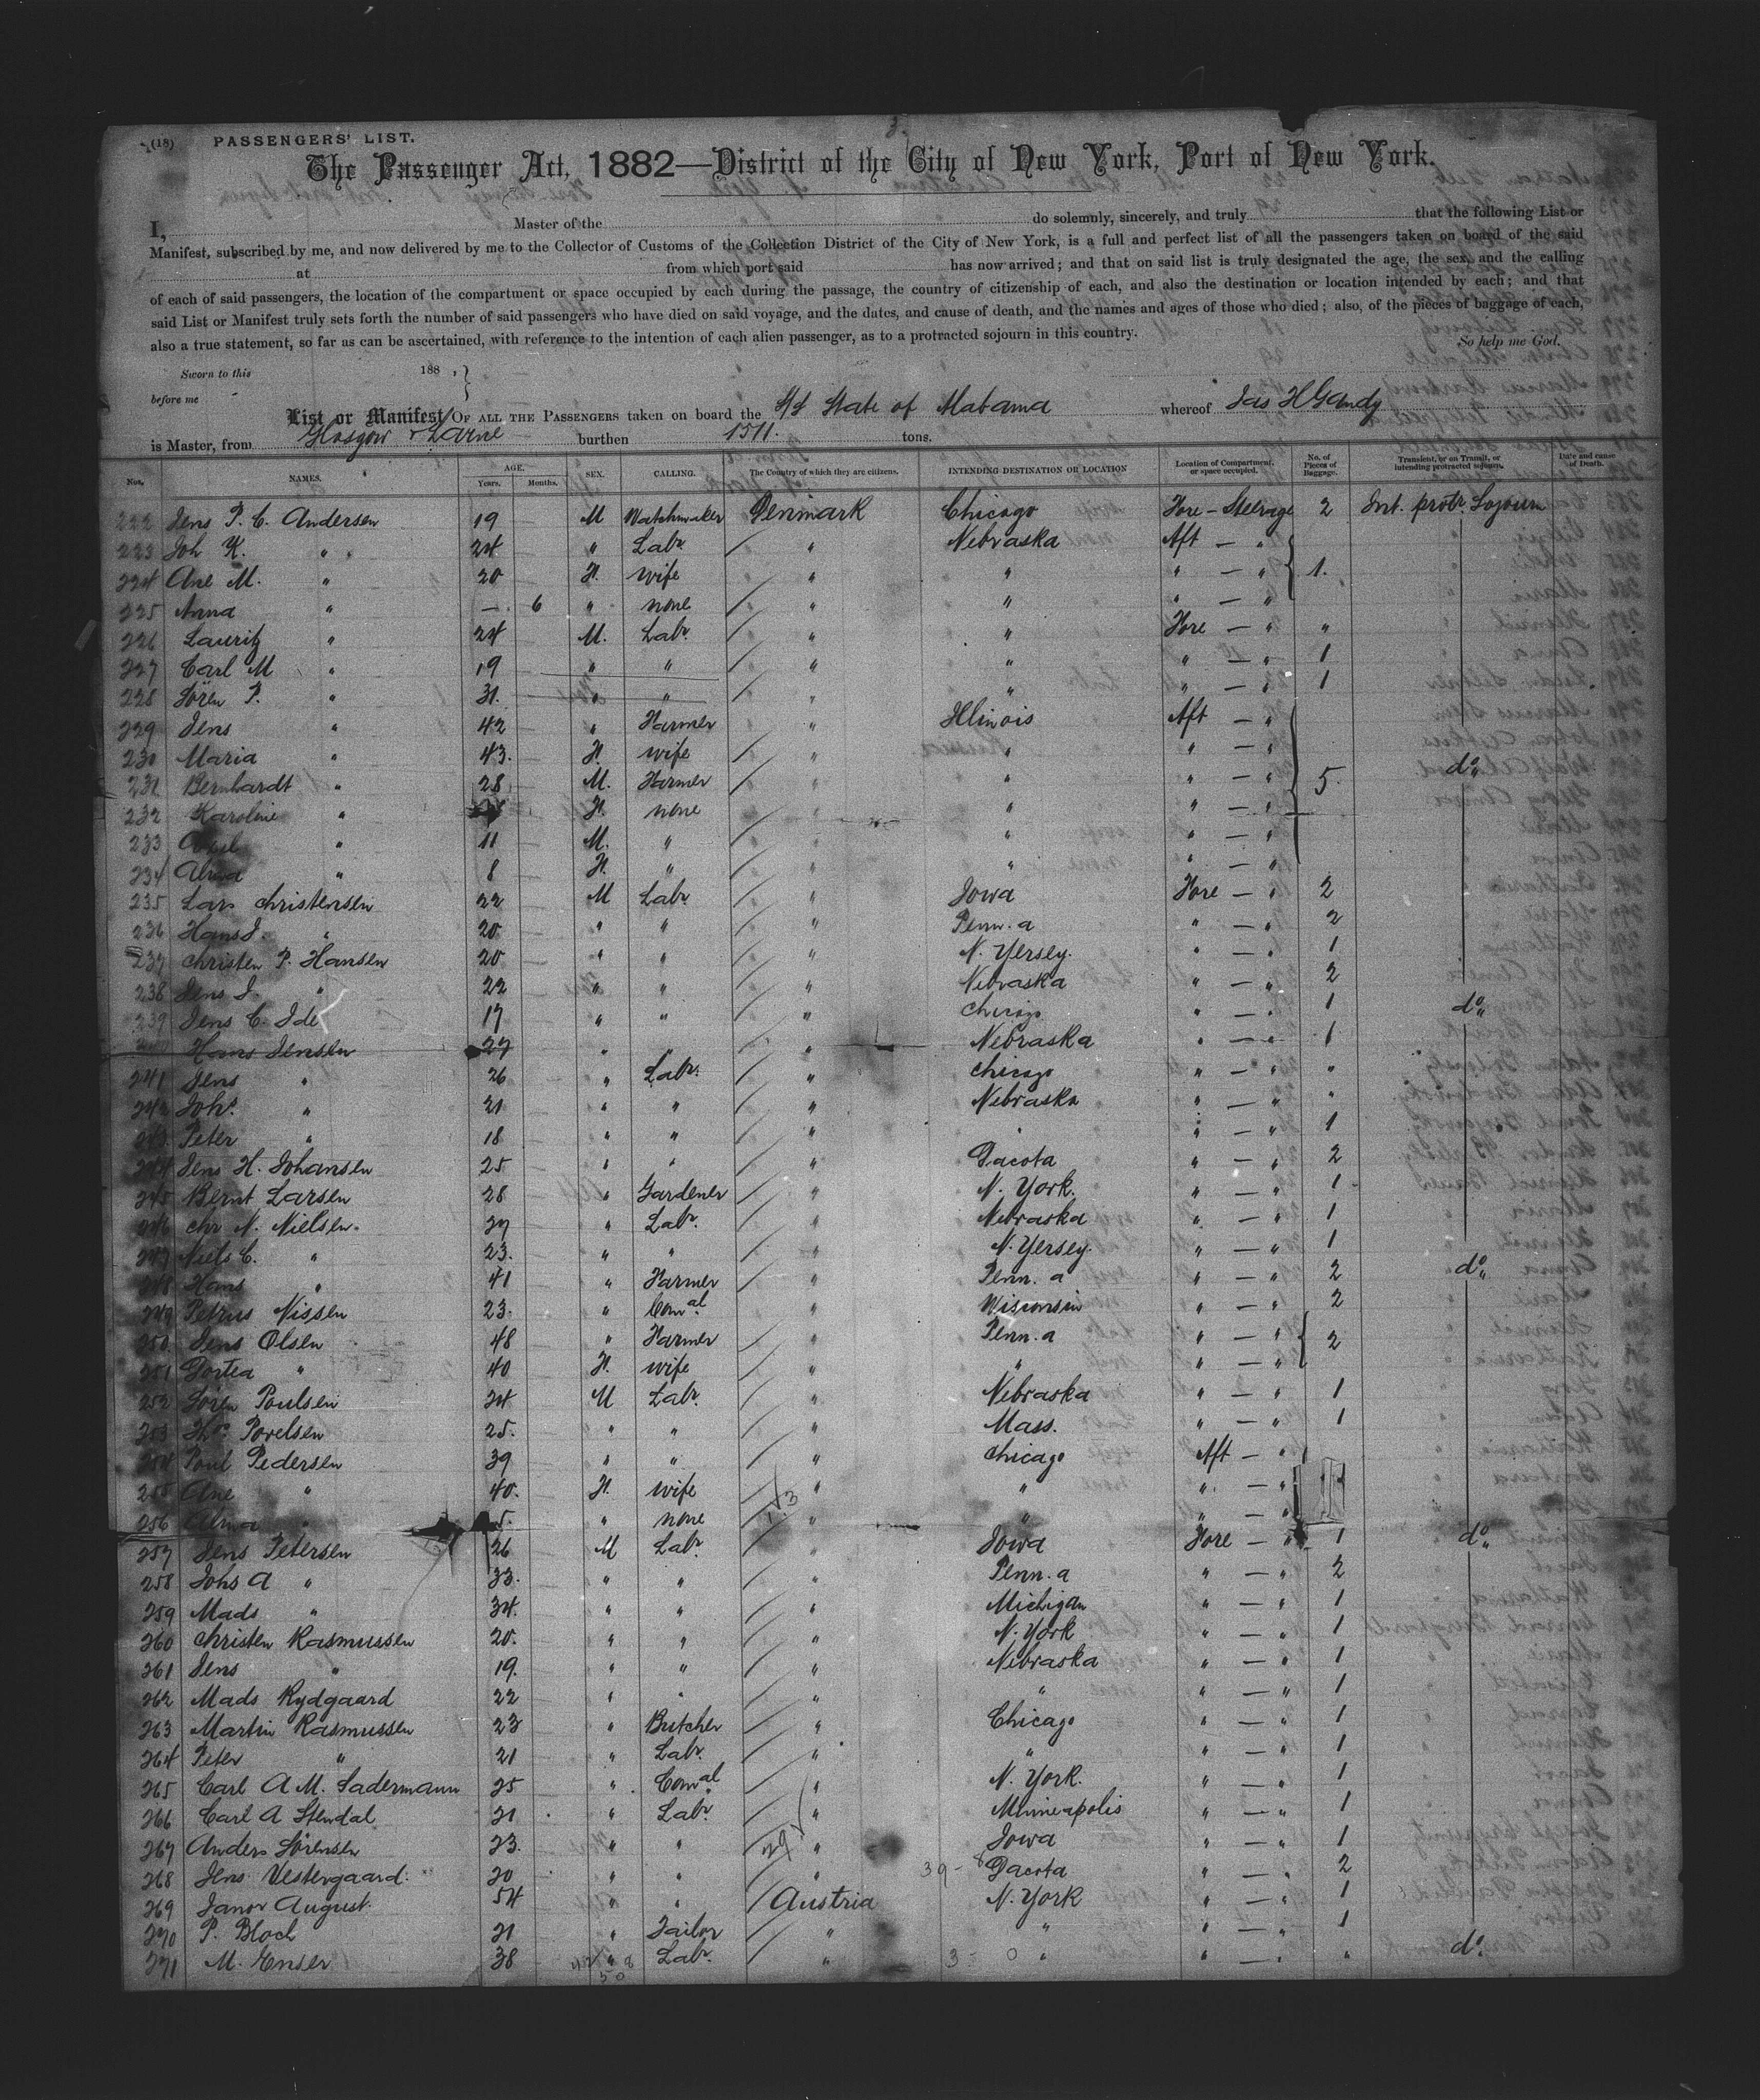 (18) PASSENGERS' LIST.
The Passenger Act, 1882—District of the City of New York, Port of New York.
I, Master of the do solemnly, sincerely, and truly that the following List or
Manifest, subscribed by me, and now delivered by me to the Collector of Customs of the Collection District of the City of New York, is a full and perfect list of all the passengers taken on board of the said
at from which port said has now arrived; and that on said list is truly designated the age, the sex, and the calling
of each of said passengers, the location of the compartment or space occupied by each during the passage, the country of citizenship of each, and also the destination or location intended by each; and that
said List or Manifest truly sets forth the number of said passengers who have died on said voyage, and the dates, and cause of death, and the names and ages of those who died; also, of the pieces of baggage of each,
also a true statement, so far as can be ascertained, with reference to the intention of each alien passenger, as to a protracted sojourn in this country. So help me God.
Sworn to this 188 ,
before me
List or Manifest OF ALL THE PASSENGERS taken on board the S/S State of Alabama whereof Jas H Gandy
is Master, from Glasgow & Larne burthen 1511. tons.
Nos. NAMES. AGE. Years. Months. SEX. CALLING. The Country of which they are citizens. INTENDING DESTINATION OR LOCATION Location of Compartment, or space occupied. No. of Pieces of Baggage. Transient, or on Transit, or intending protracted sojourn. Date and cause of Death.
222 Jens P. C. Andersen 19 M Watchmaker Denmark Chicago Fore - Steerage 2 Int. protr. Sojourn
223 Joh K. " 24 " Labr " Nebraska Aft — "
224 Ane M. " 20 F. wife " " " — " 1.
225 Anna " — 6 " none " " " — "
226 Lauritz " 24 M. Labr " " Fore — " "
227 Carl M " 19 " " " " " — " 1
228 Sören P. " 31. " " " " " — " 1
229 Jens " 42 " Farmer " Illinois Aft — "
230 Maria " 43. F. wife " " " — "
231 Bernhardt " 28 M. Farmer " " " — " 5. do
232 Karoline " F. none " " " — "
233 " 11 M. " " " " — "
234 Alma " 8 F. " " " " — "
235 Lars Christensen 22 M Labr " Iowa Fore — " 2
236 Hans J. " 20 " " " Penn.a " — " 2
237 Christen P. Hansen 20 " " " N. Yersey. " — " 1
238 Jens J. " 22 " " " Nebraska " — " 2
239 Jens C. Ide 17 " " " Chicago " — " 1 do
Hans Jensen 27 " " " Nebraska " — " 1
241 Jens " 26 " Labr. " Chicago " — " "
242 Johs. " 21 " " " Nebraska " — " "
243 Peter " 18 " " " " " — " 1
244 Jens H. Johansen 25 " " " Dacota " — " 2
245 Bernt Larsen 28 " Gardener " N. York. " — " 1
246 Chr N. Nielsen. 27 " Labr. " Nebraska " — " 1
247 Niels C. " 23. " " " N. Yersey. " — " 1
248 Hans " 41 " Farmer " Penn. a " — " 2 do
249 Petrus Nissen 23. " Comal " Wisconsin " — " 2
250 Jens Olsen 48 " Farmer " Penn.a " — " 2
251 Dortea " 40 F. wife " " " — "
252 Sören Poulsen 24 M Labr. " Nebraska " — " 1
253 Povelsen 25. " " " Mass. " — " 1
254 Poul Pedersen 39 " " " Chicago Aft — "
255 Ane " 40. F. wife " " " — "
256 Alma " 5. " none " " " — "
257 Jens Petersen 26 M Labr. " Iowa Fore — " 1 do
258 Johs A " 33. " " " Penn.a " — " 2
259 Mads " 34. " " " Michigan " — " 1
260 Christen Rasmussen 20. " " " N. York " — " 1
261 Jens " 19. " " " Nebraska " — " 1
262 Mads Rydgaard 22 " " " " " — " 1
263 Martin Rasmussen 23 " Butcher " Chicago " — " 1
264 Peter " 21 " Labr. " " " — " 1
265 Carl A M. Sadermann 25 " Comal " N. York. " — " 1
266 Carl A Stendal 21 " Labr. " Minneapolis " — " 1
267 Anders Sörensen 23. " " " Iowa " — " 1
268 Jens Vestergaard. 20 " " " Dacota " — " 2
269 Janor August. 54 " " Austria N. York " — " 1
270 P. Bloch 21 " Tailor " " " — " 1
271 M. Enser 38 " Labr. " " " — " " do